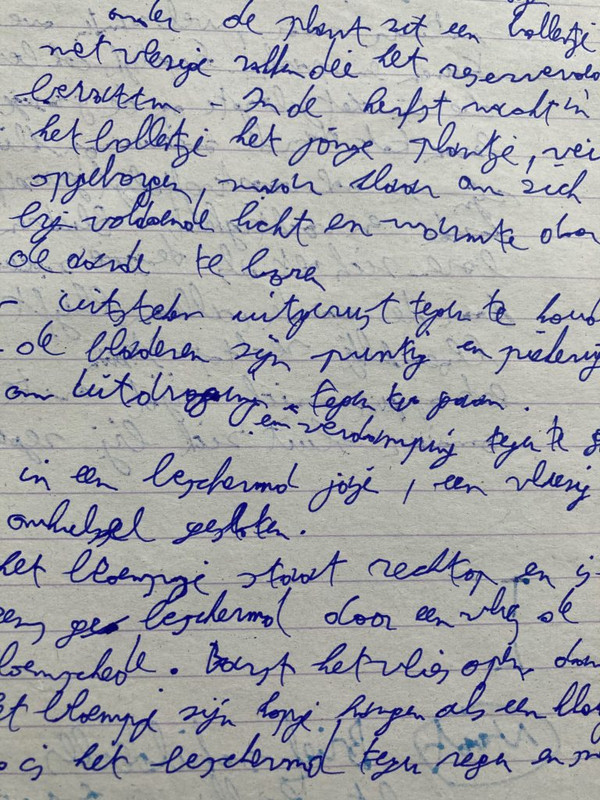 onder de plant zit een bolletje
met vlezige rokken die het reservevoe
bevatten - In de herfst wacht in
het bolletje het jonge plantje, vei
opgeborgen, klaar om zich
bij voldoende licht en warmte door
de aarde te boren
- uitstekend uitgerust tegen te koud
- de bladeren zijn puntig en
om uitdroging tegen te gaan.
en verdamping tegen te g
in een beschermd jasje, een vliezig
omhulsel gesloten.
het bloempje staat rechtop en is
beschermd door een vlies de
loemschede. Barst het vlies open dan
et bloempje zijn kopje hangen als een klok
o is het beschermd tegen regen en